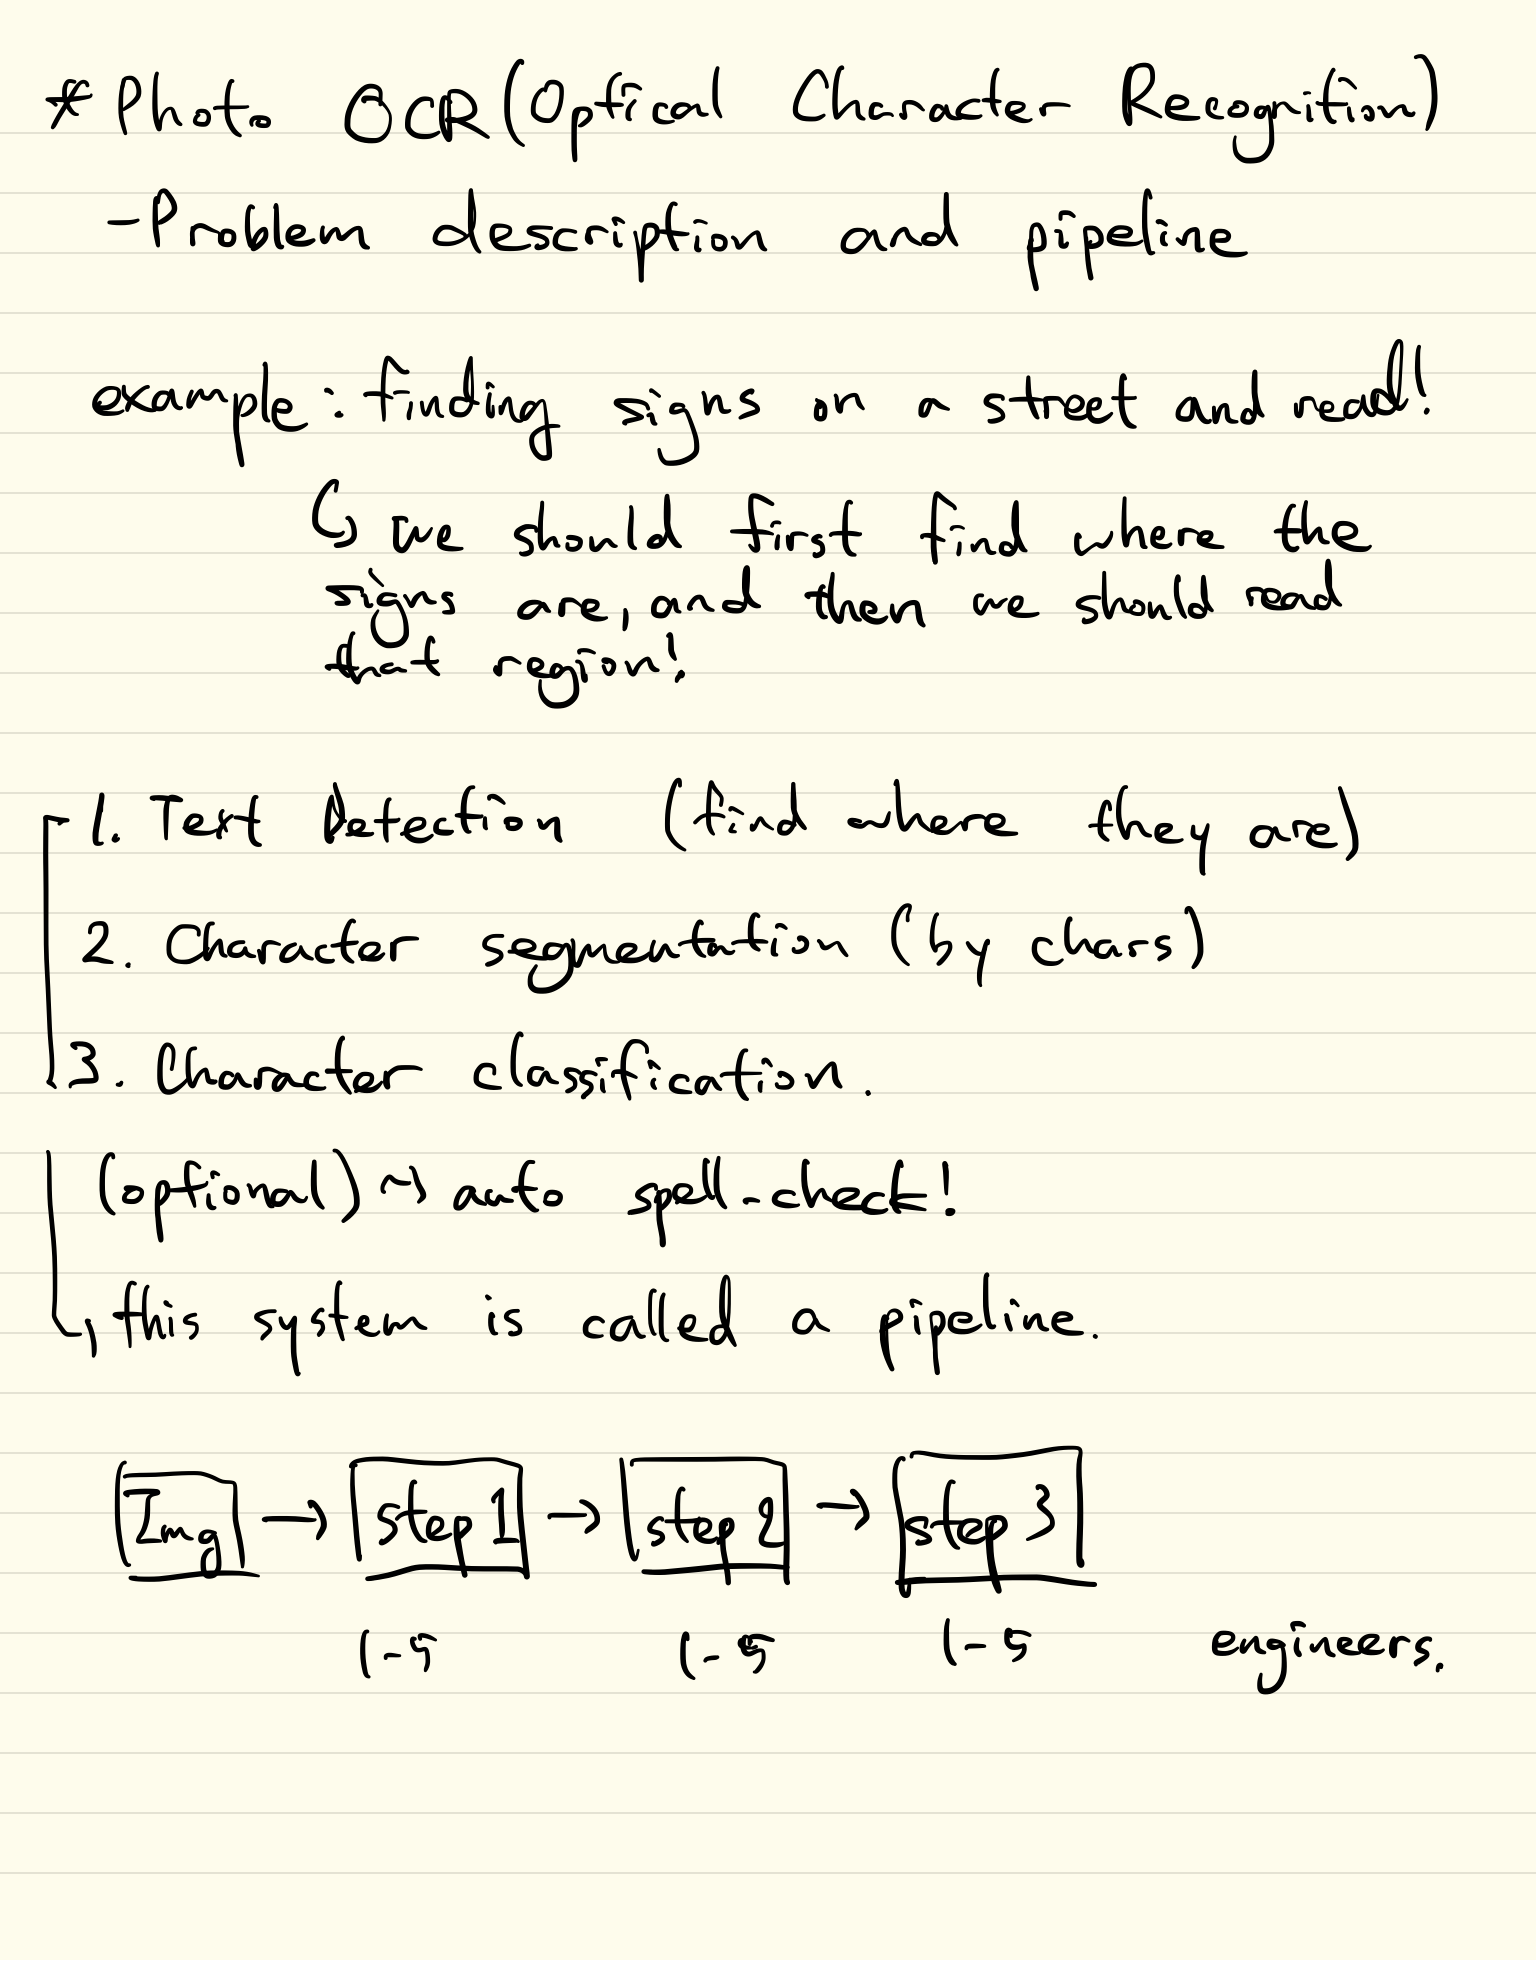 * Photo OCR (Optical Character Recognition)
- Problem description and pipeline
example : finding signs on a street and read!
↳ we should first find where the
signs are, and then we should read
that region!
1. Text Detection (find where they are)
2. Character segmentation (by chars)
3. Character classification.
(optional) ~> auto spell-check!
↳ this system is called a pipeline.
Img → step 1 → step 2 → step 3
1-5 1-5 1-5 engineers.